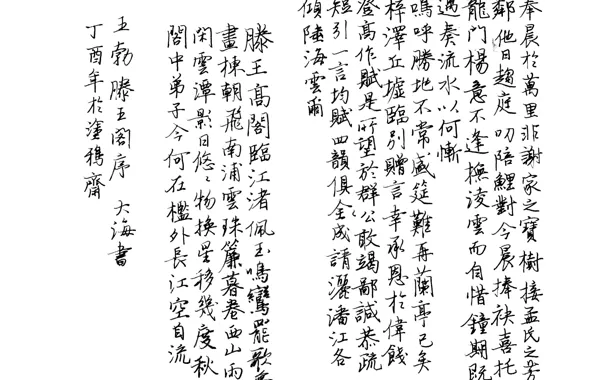 奉晨於萬里非謝家之寶樹接孟氏之芳
鄰他日趨庭叨陪鯉對今晨捧袂喜托
龍門楊意不逢撫凌雲而自惜鐘期既
遇奏流水以何慚
嗚呼勝地不常盛筵難再蘭亭已矣
梓澤丘墟臨別贈言幸承恩於偉餞
登高作賦是所望於群公敢竭鄙誠恭疏
短引一言均賦四韻俱全成請灑潘江各
傾陸海雲爾
滕王高閣臨江渚佩玉鳴鸞罷歌
畫棟朝飛南浦雲珠簾暮卷西山雨
閑雲潭影日悠〻物換星移幾度秋
閣中弟子今何在檻外長江空自流
王勃滕王閣序 大海書
丁酉年於塗鴉齋